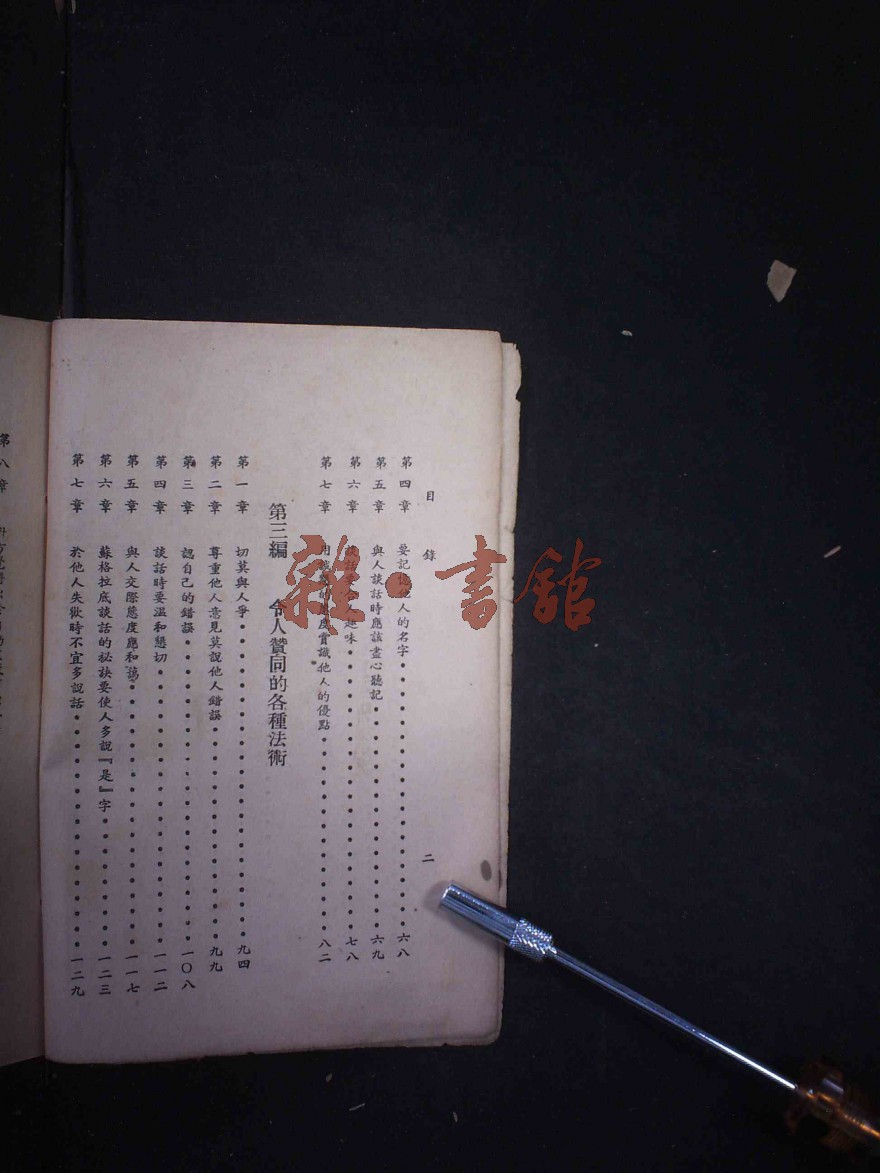 目錄 二
第四章 要記憶他人的名字 六八
第五章 與人談話時應該盡心聽記 六九
第六章 趣味 七八
第七章 賞識他人的優點 八二
第三編 令人贊同的各種法術
第一章 切莫與人爭 九四
第二章 尊重他人意見莫說他人錯誤 九九
第三章 認自己的錯誤 一〇八
第四章 談話時要溫和懇切 一一二
第五章 與人交際態度應和藹 一一七
第六章 蘇格拉底談話的祕訣要使人多說『是』字 一二三
第七章 於他人失歡時不宜多說話 一二九
第八章
雜·書館